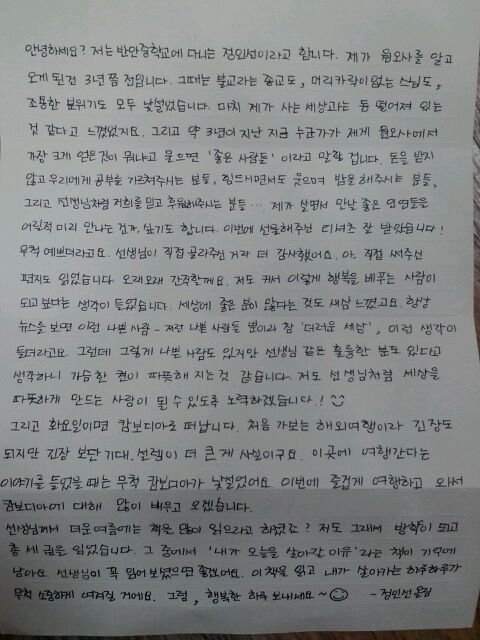 안녕하세요? 저는 반안중학교에 다니는 정인선이라고 합니다. 제가 원오사를 알고
오게 된건 3년쯤 전입니다. 그때는 불교라는 종교도, 머리카락이 없는 스님도,
조용한 분위기도 모두 낯설었습니다. 마치 제가 사는 세상과는 동 떨어져 있는
것 같다고 느꼈었지요. 그리고 약 3년이 지난 지금 누군가가 제게 원오사에서
가장 크게 얻은것이 뭐냐고 물으면 '좋은 사람들' 이라고 말할 겁니다. 돈을 받지
않고 우리에게 공부을 가르쳐주시는 분들, 힘드시면서도 웃으며 밥을 해주시는 분들,
그리고 선생님처럼 저희를 믿고 후원해주시는 분들…. 제가 살면서 만날 좋은 인연들을
어릴적 미리 만나는 건가, 싶기도 합니다. 이번에 선물해주신 티셔츠 잘 받았습니다!
무척 예쁘더라고요. 선생님이 직접 골라주신 거라 더 감사했어요. 아, 직접 써주신
편지도 읽었습니다. 오래오래 간직할께요. 저도 커서 이렇게 행복을 베푸는 사람이
되고 싶다는 생각이 들었습니다. 세상에 좋은 분이 많다는 것도 새삼 느꼈고요. 항상
뉴스을 보면 이런 나쁜 사람 - 저런 나쁜 사람들 뿐이라 참 '더러운 세상', 이런 생각이
들더라고요. 그런데 그렇게 나쁜 사람도 있지만 선생님 같은 훌륭한 분도 있다고
생각하니 가슴 한 켠이 따뜻해 지는 것 같습니다. 저도 선생님처럼 세상을
따뜻하게 만드는 사람이 될 수 있도록 노력하겠습니다.!
그리고 화요일이면 캄보디아로 떠납니다. 처음 가보는 해외여행이라 긴장도
되지만 긴장 보단 기대, 설렘이 더 큰게 사실이구요. 이곳에 여행간다는
이야기를 들었을 때는 무척 캄보디아가 낯설었어요. 이번에 즐겁게 여행하고 와서
캄보디아에 대해 많이 배우고 오겠습니다.
선생님께서 더운 여름에는 책을 많이 읽으라고 하셨죠? 저도 그래서 방학이 되고
총 세 권을 읽었습니다. 그 중에서 '내가 오늘을 살아갈 이유'라는 책이 기억에
남아요. 선생님이 꼭 읽어 보셨으면 좋겠어요. 이 책을 읽고 내가 살아가는 하루하루가
무척 소중하게 여겨질 거에요. 그럼, 행복한 하루 보내세요~ - 정인선 올림